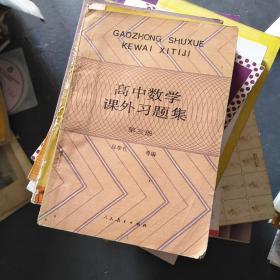 GAOZHONG SHUXUE
KEWAI XITIJI
高中数学
课外习题集
第三册
等编
人民教育出版社